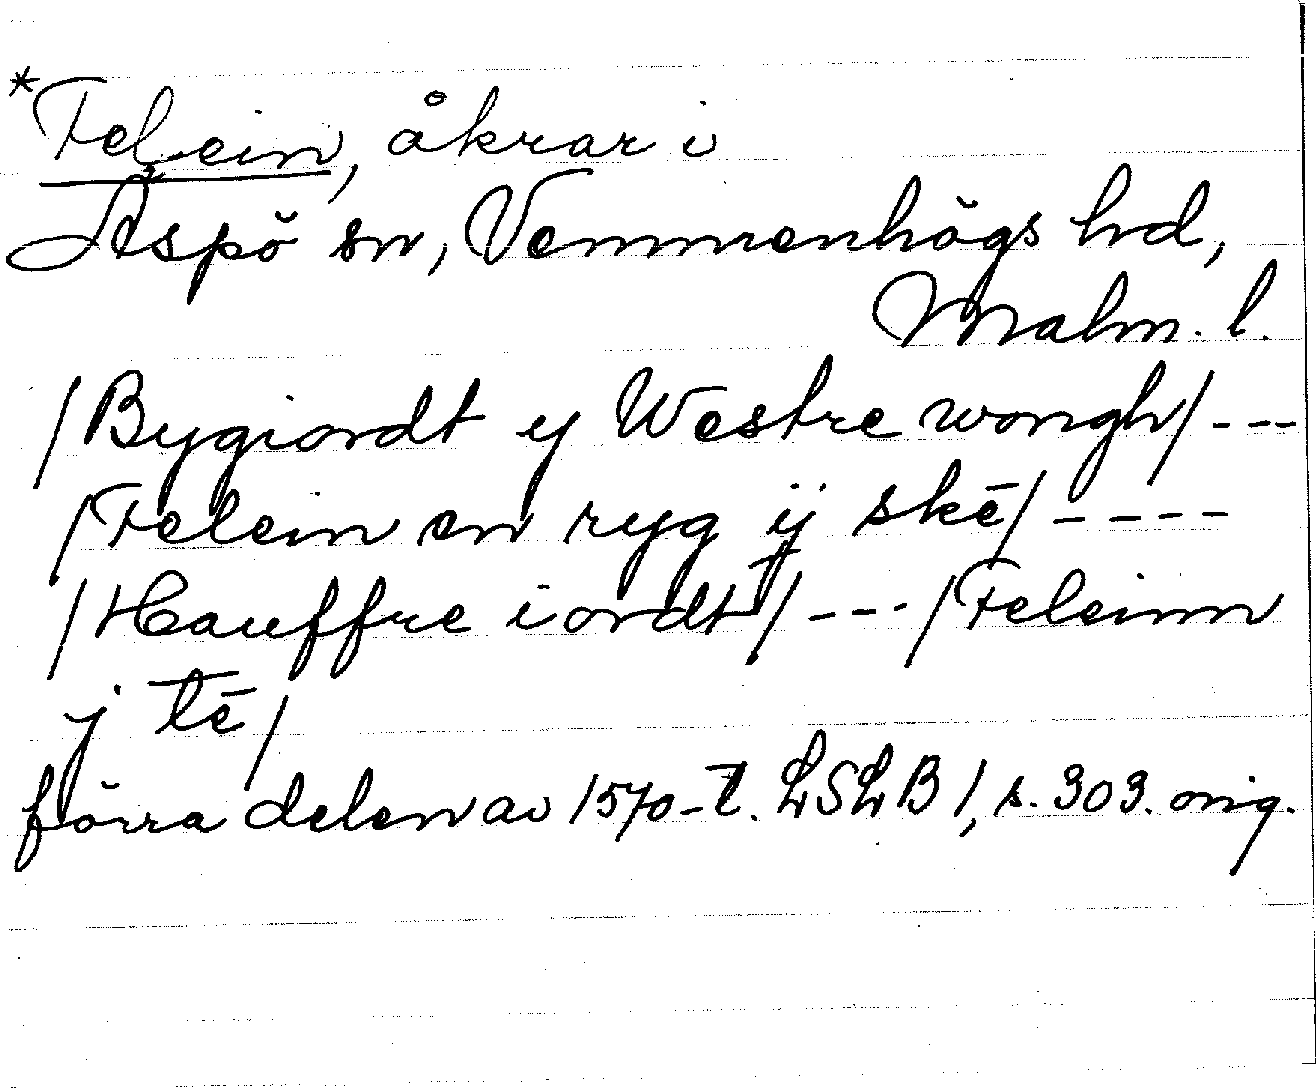 *Felein, åkrar i
Äspö sn, Vemmenhögs hd,
Malm. l.
/Bygiordt y Westre wongh/ ---
/Felein en ryg ij skē/ ----
/Hauffre iordt/ --- /Feleinn
j tē/
förra delen av 1570-t. LSLB 1, s. 303. orig.